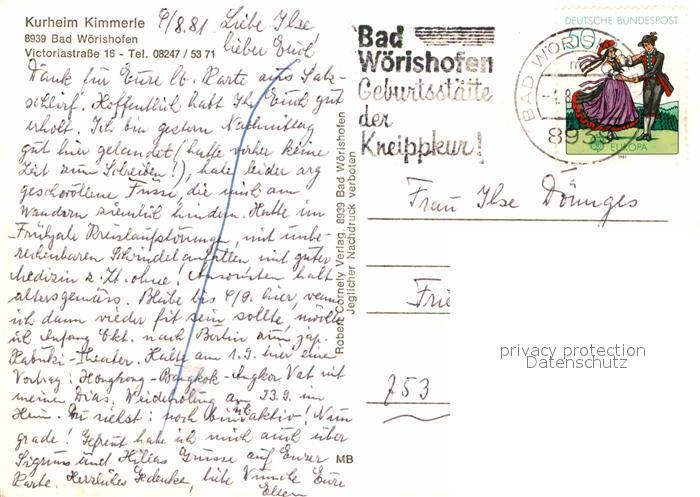 Kurheim Kimmerle
8939 Bad Wörishofen
Victoriastraße 16 - Tel. 08247 / 53 71
9/8.81 Liebe Ilse!
lieber Erich!
Dank für Eure lb. Karte aus Salz-
schlirf. Hoffentlich habt Ihr Euch gut
erholt. Ich bin gestern Nachmittag
gut hier gelandet (hatte vorher keine
Zeit zum Schreiben!), habe leider arg
geschwollene Füsse, die mich am
Wandern ziemlich hindern. Hatte im
Frühjahr Kreislaufstörungen, mit unbe-
rechenbaren Schwindelanfällen mit guter
Medizin z. Zt. ohne! Ansonsten halt
altersgemäss. Bleibe bis 6/9. hier, wenn
ich dann wieder fit sein sollte, möchte
ich Anfang Okt. nach Berlin zum jap.
Kabuki-Theater. Halte am 1.9. hier eine
Vortrag: Hongkong-Bangkok-Angkor Vat mit
meinen Dias. Wiederholung am 23.9. im
Heim. Du siehst: noch bin ich aktiv! Nun
grade! Gefreut habe ich mich auch über
Sigruns und Grüsse auf Eurer
Karte. Herzliches Gedenken, liebe Eure
Ellen
Robert Cornely Verlag, 8939 Bad Wörishofen
Jeglicher Nachdruck verboten
MB
Bad
Wörishofen
Geburtsstätte
der
Kneippkur!
BAD WÖRIS
893
DEUTSCHE BUNDESPOST
50
EUROPA
1981
Frau Ilse Dönnges
Frie
753
privacy protection
Datenschutz